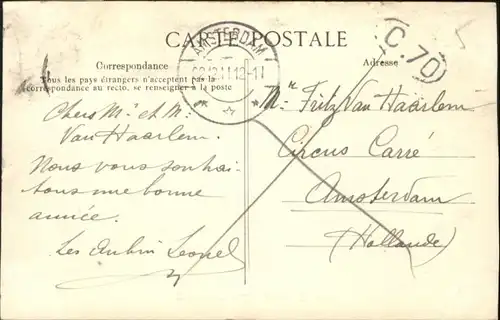 CARTE POSTALE
AMSTERDAM
C.70
Correspondance
Tous les pays étrangers n'acceptent pas la
correspondance au recto, se renseigner à la poste
Adresse
Chers Mr et Me
Van Haarlem.
Nous vous souhai-
tons une bonne
année.
Les
Mr Fritz Van Haarlem
Circus Carré
Amsterdam
(Hollande)